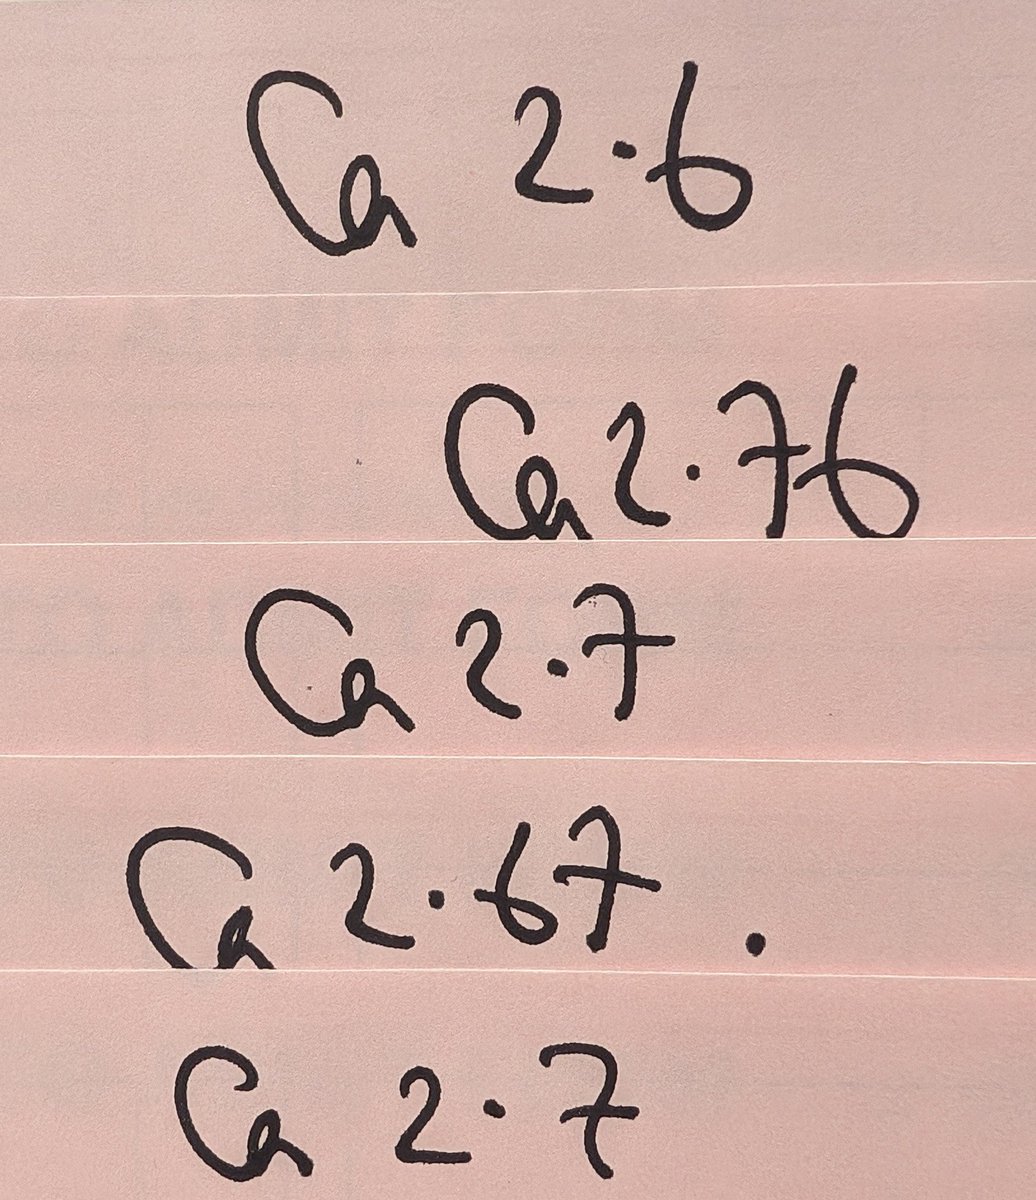 Ca 2.6
Ca 2.76
Ca 2.7
Ca 2.67.
Ca 2.7